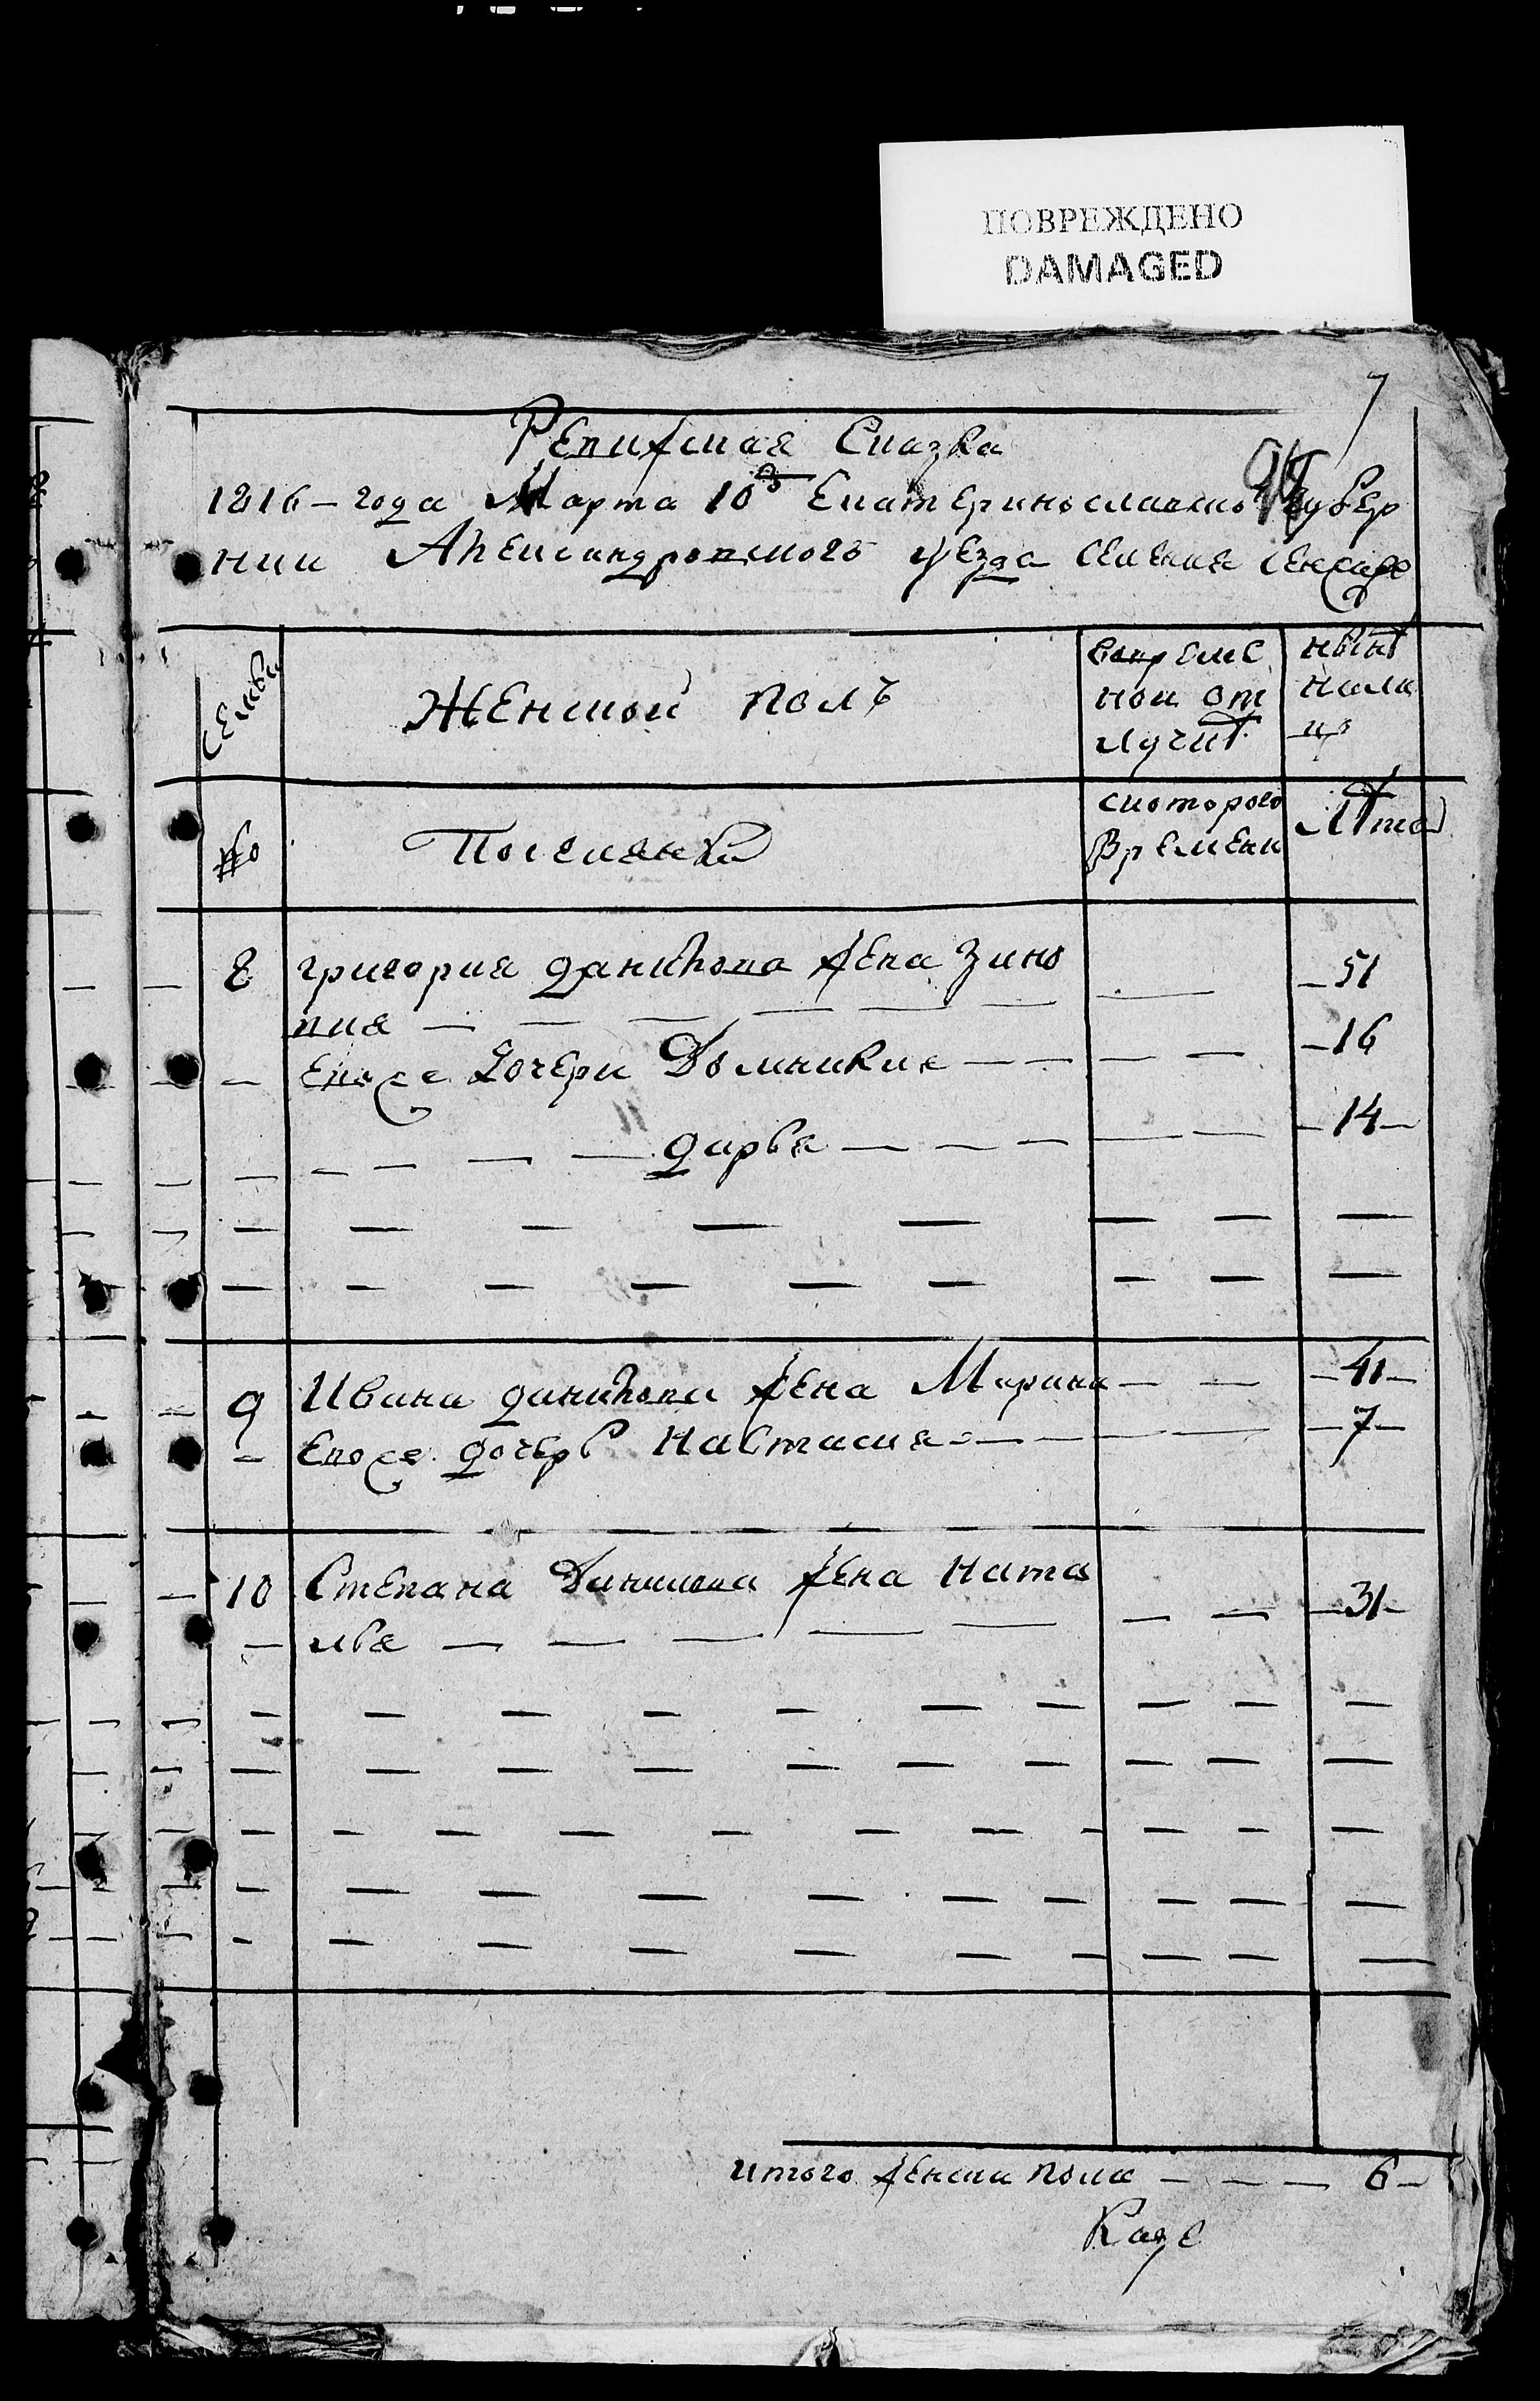 ПОВРЕЖДЕНО
DAMAGED
7
Ревижская Сказка
1816 – года Марта 10 Екатеринославско Губер
нии Александровского уезда селения
семьи
Женской полъ
вовреме
ной от
лучкѣ
нынѣ
нали
цо
№
Поселянки
с которого
времени
Лѣта
8 григория данилова жена Зино 51
вия
евоже Дочери Домникия 16
дарья 14
9 Ивана данилова жена Марина 41
евоже дочерь Настасия 7
10 Степана Данилова жена Ната 31
лья
итого женска пола 6